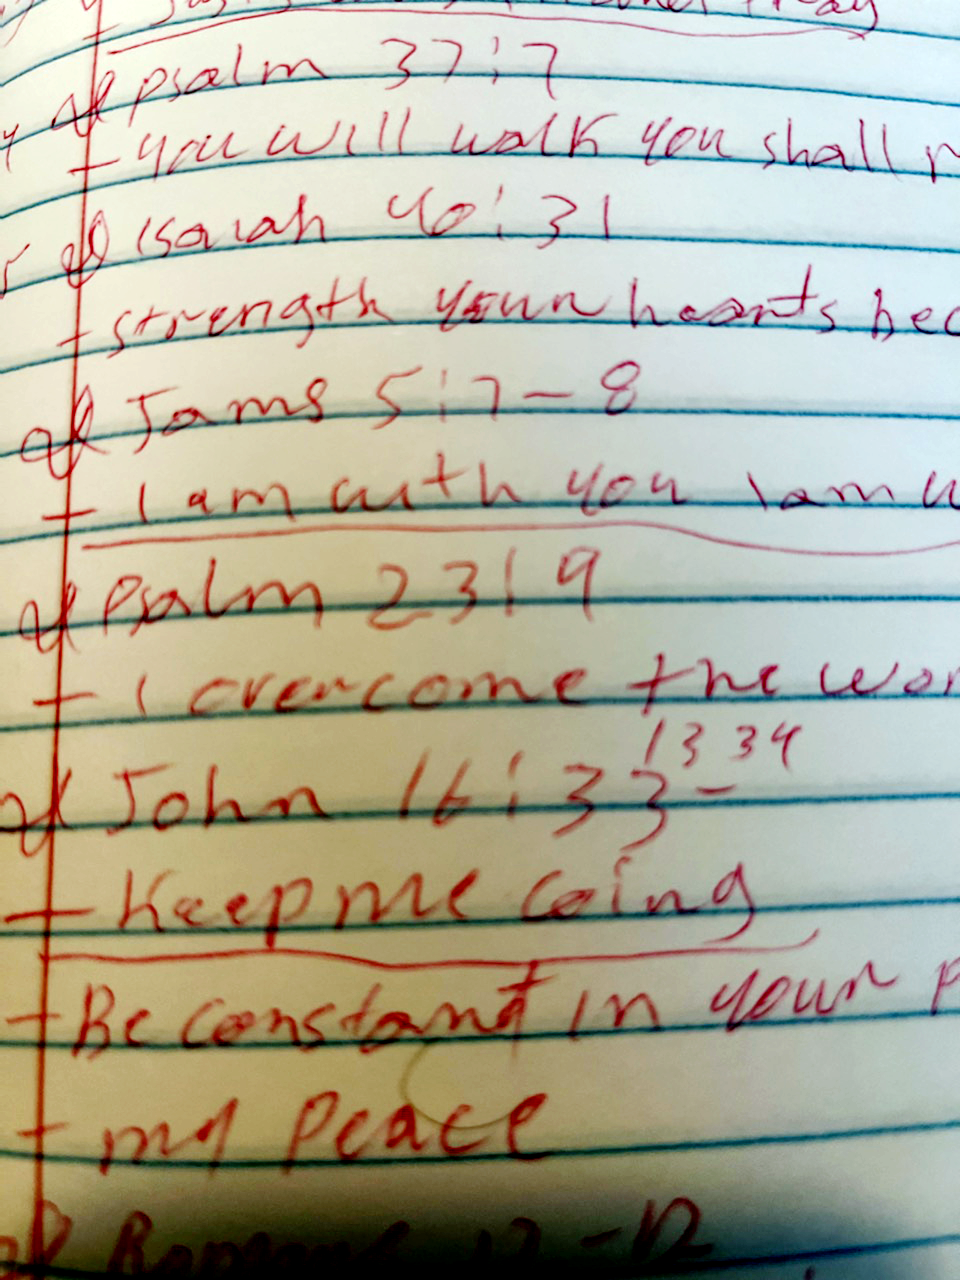 Psalm 37:7
- you will walk you shall
Isaiah 40:31
- strength your hearts bec
Jams 5:7-8
- I am with you I am w
Psalm 23:9
- I overcome the wor
13 34
John 16:33 -
- Keep me going
- Be constant in your p
- my Peace
Romans 12-12